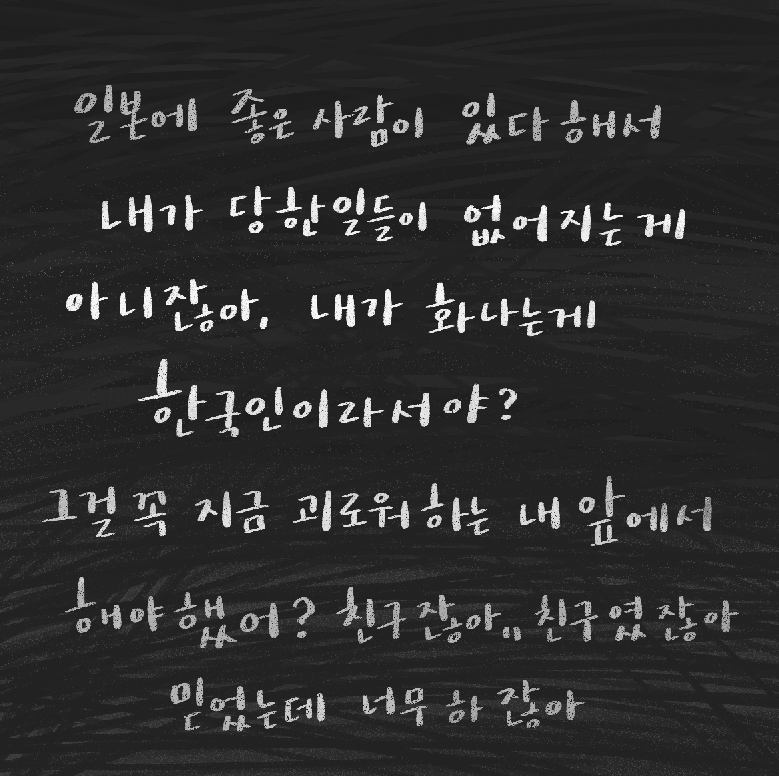 일본에 좋은 사람이 있다 해서
내가 당한일들이 없어지는 게
아니잖아, 내가 화나는게
한국인이라서야?
그걸 꼭 지금 괴로워하는 내 앞에서
해야했어? 친구잖아,, 친구였잖아
믿었는데 너무 하잖아